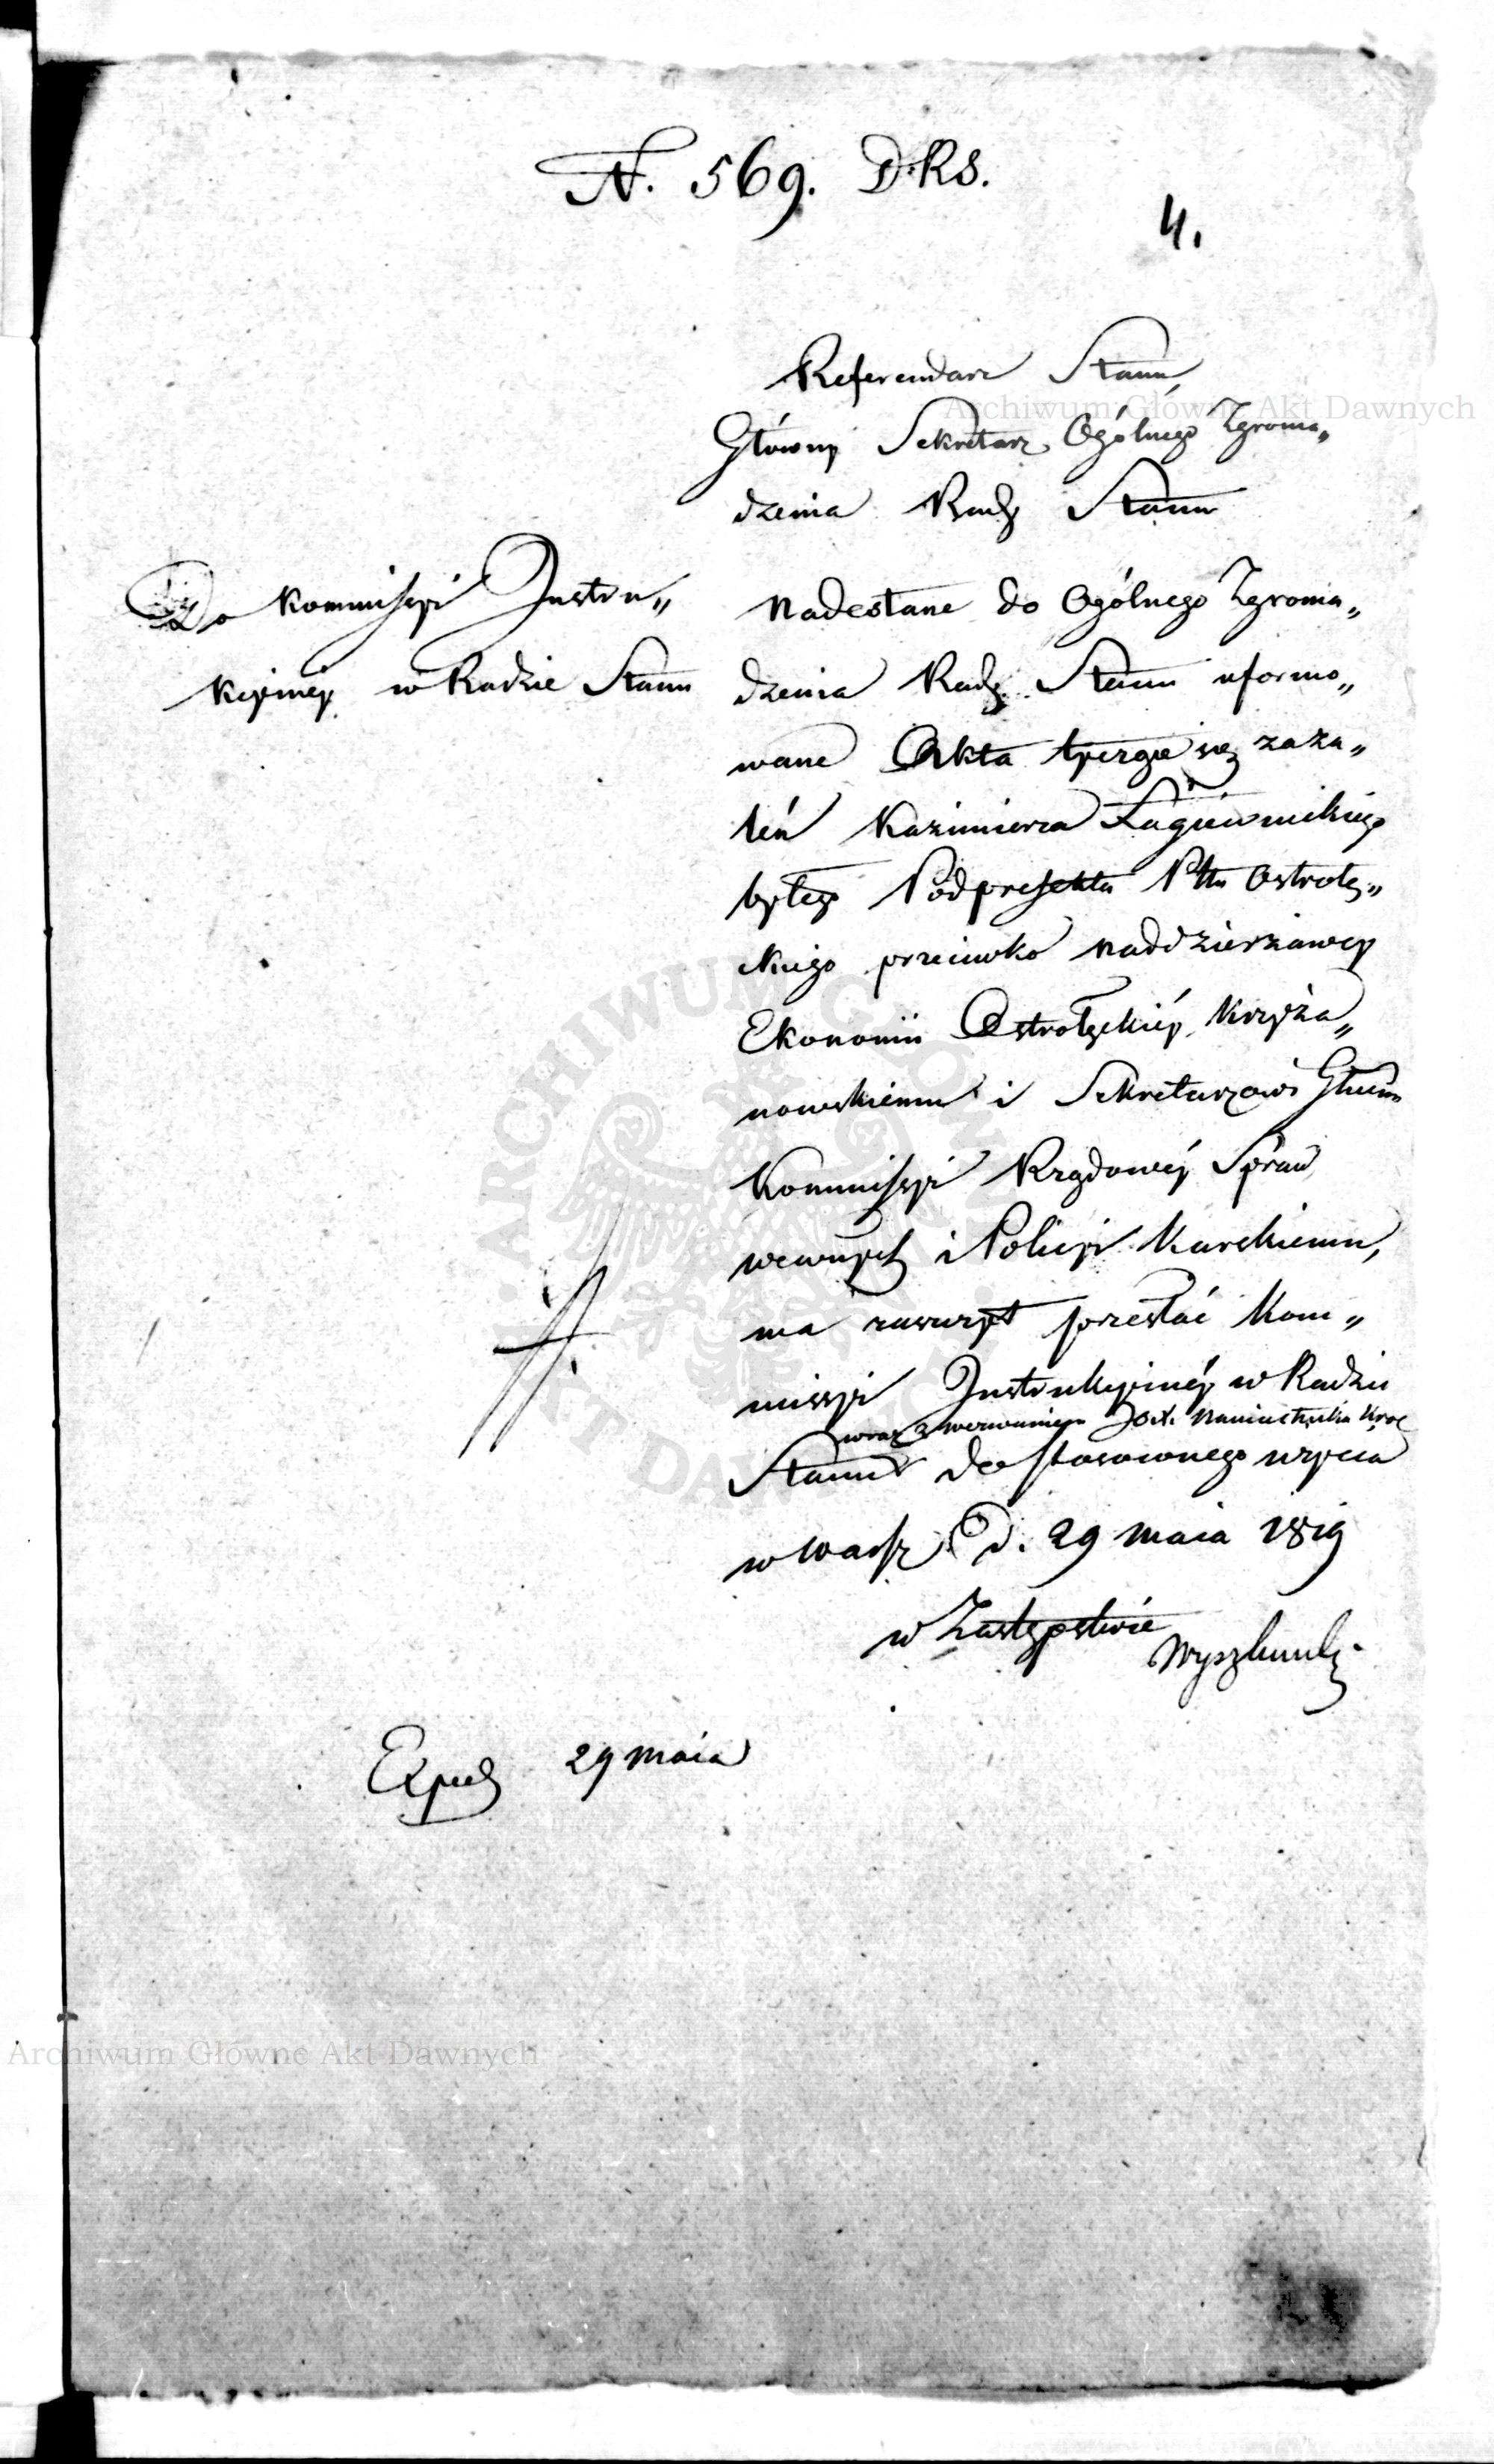 N. 569. D.R.S.
4.
Referendarz Stanu
Główny Sekretarz Ogólnego Zgroma„
dzenia Rady Stanu
Do Kommissyi Instru„
kcyiney w Radzie Stanu
Nadesłane do Ogólnego Zgroma„
dzenia Rady Stanu uformo„
wane Akta tyczące się zaża„
leń Kazimierza Łagiewnickiego
byłego Podprefekta Pttu Ostrołę„
ckiego przeciwko naddzierżawcy
Ekonomii Ostrołęckiéy Krzyża„
nowskiemu i Sekretarzowi Głłmu
Kommissyi Rządowéy Spraw
wewnych i Policyi Karskiemu,
ma zaszczyt przesłać Kom„
missyi Instrukcyinéy w Radzie
wraz z wezwaniem JOX. Namiestnika Król
Stanu do stosownego użycia
w Warsz. d. 29 Maia 1819
w Zastępstwie
Expед 29 maia
Archiwum Główne Akt Dawnych
Archiwum Główne Akt Dawnych
ARCHIWUM GŁÓWNE AKT DAWNYCH